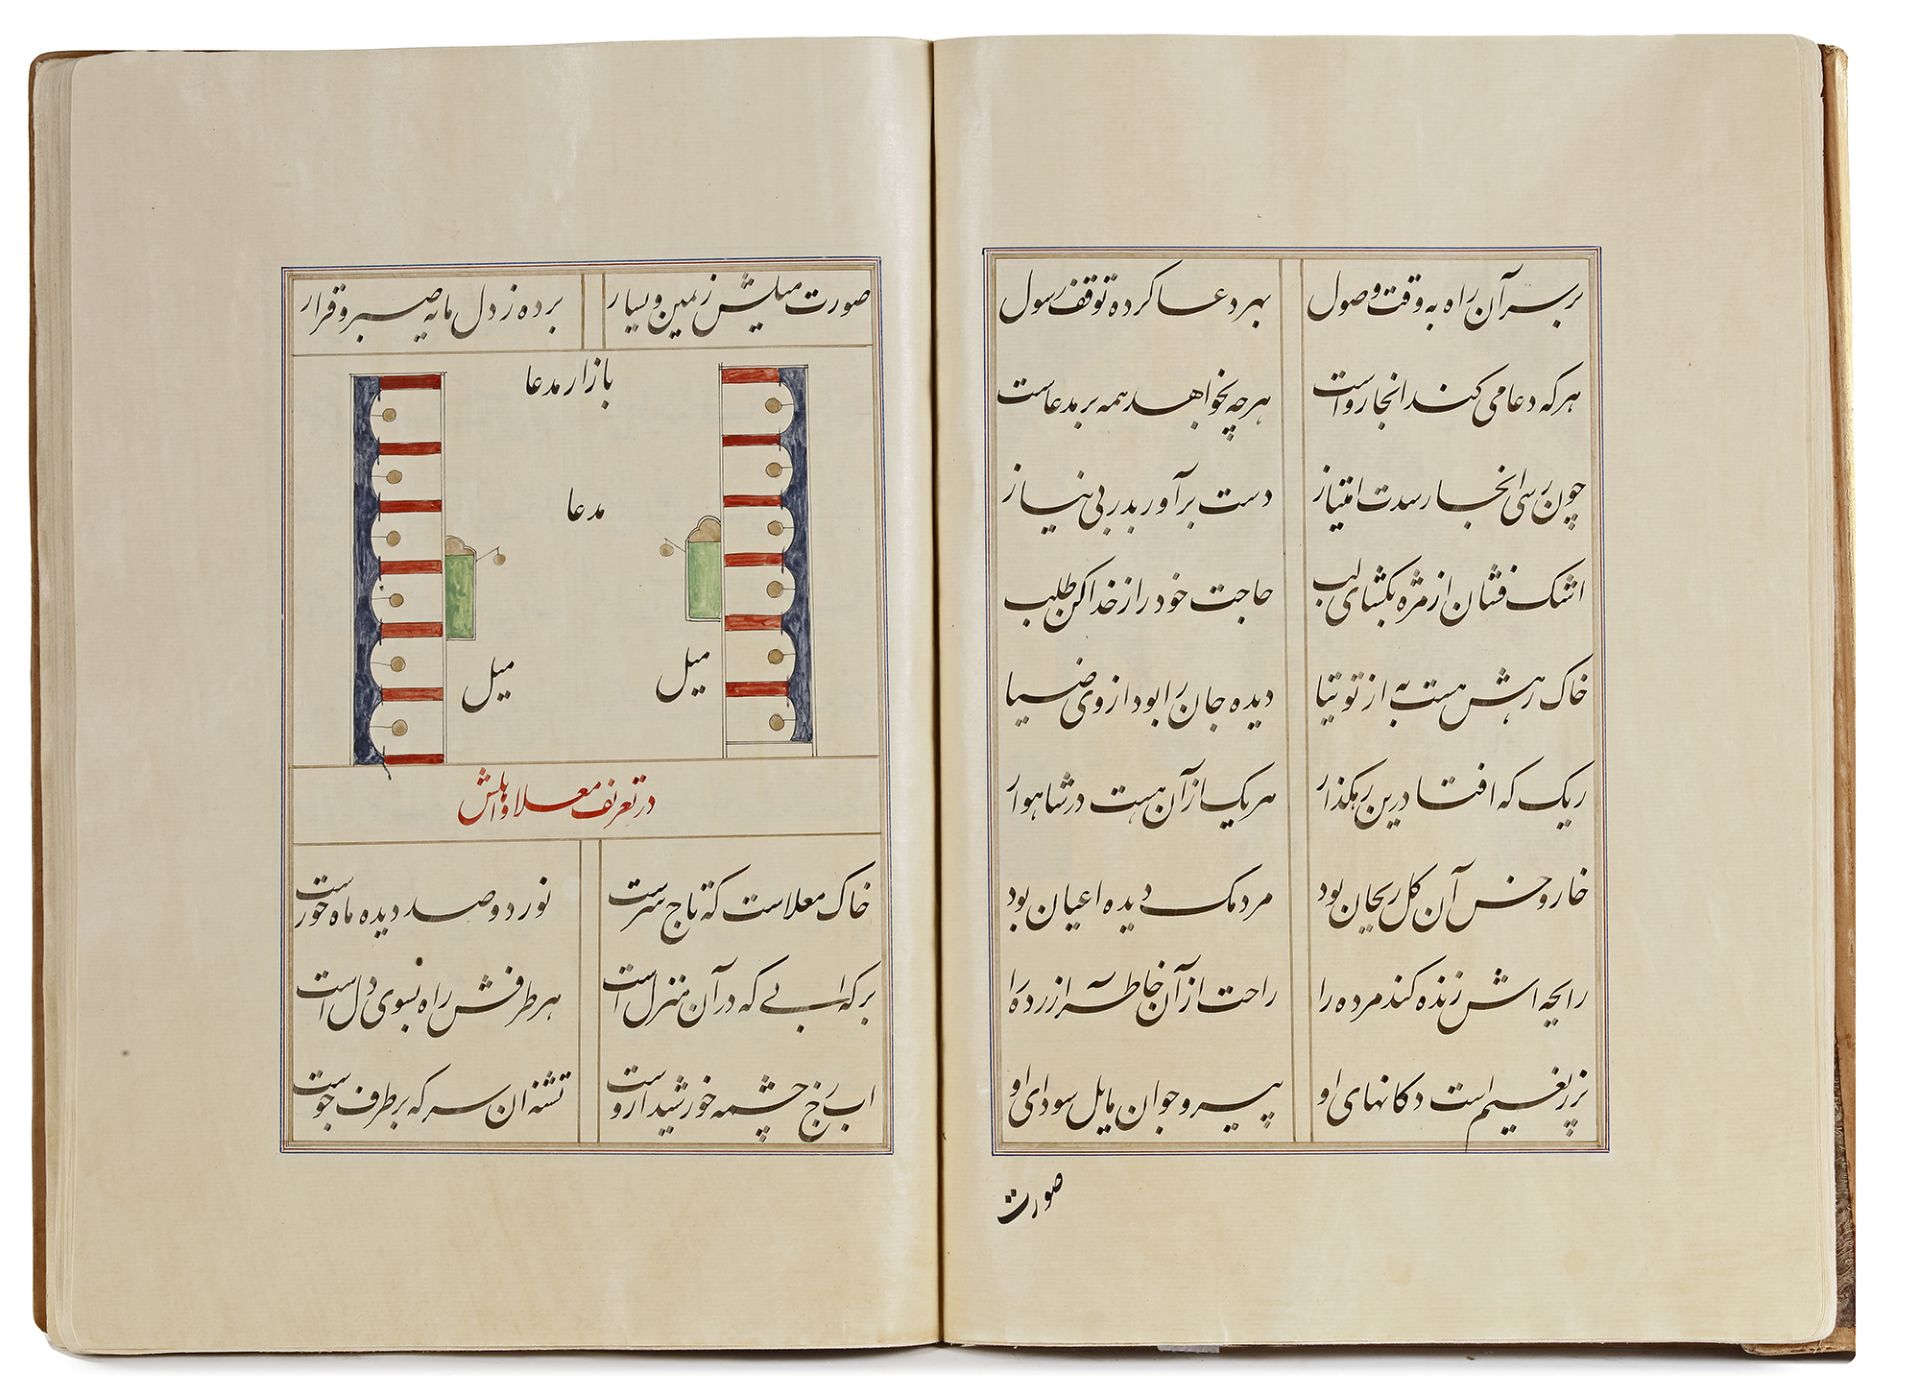 بر سر آن راه به وقت وصول بهر دعا کرده توقف رسول
هر که دعا می کند انجا رواست هر چه بخواهد همه بر مدعاست
چون رسی انجا رسدت امتیاز دست برآور بدر بی نیاز
اشک فشان از مژه بکشای لب حاجت خود را از خدا کن طلب
خاک رهش هست به از توتیا دیده جان را بود از وی ضیا
ریک که افتا درین رهکذار هر یک از آن هست در شاهوار
خار و خس آن کل ریحان بود مردمک دیده اعیان بود
رایحه اش زنده کند مرده را راحت از آن خاطر ازرده را
پر زر نعیم است دکانهای او پیر و جوان مایل سودای او
صورت
صورت میلش ز یمین و یسار برده ز دل مایه صبر و قرار
بازار مدعا
مدعا
میل میل
در تعریف معلا و اهلش
خاک معلاست که تاج سرست نور دو صد دیده ماه خورست
برکه ابی که در آن منزل است هر طرفش راه بسوی دل است
اب رخ چشمه خورشید اروست تشنه ان سر که بر طرف جوست